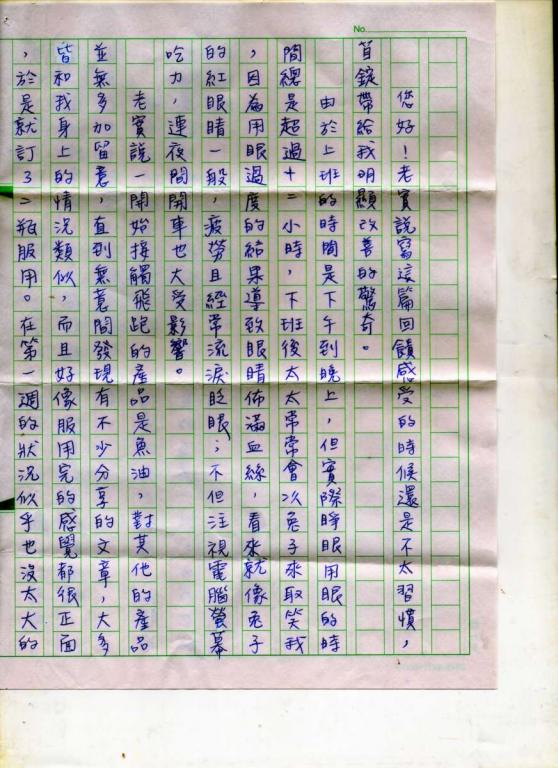 No.
您好！老實說寫這篇回饋感受的時候還是不太習慣，
苜錠帶給我明顯改善的驚奇。
由於上班的時間是下午到晚上，但實際睜眼用眼的時
間總是超過十二小時，下班後太太常常會次兔子來取笑我
，因為用眼過度的結果導致眼睛佈滿血絲，看來就像兔子
的紅眼睛一般，疲勞且經常流淚眨眼；不但注視電腦螢幕
吃力，連夜間開車也大受影響。
老實說一開始接觸飛跑的產品是魚油，對其他的產品
並無多加留意，直到無意間發現有不少分享的文章，大多
皆和我身上的情況類似，而且好像服用完的感覺都很正面
，於是就訂了3二瓶服用。在第一週的狀況似乎也沒太大的